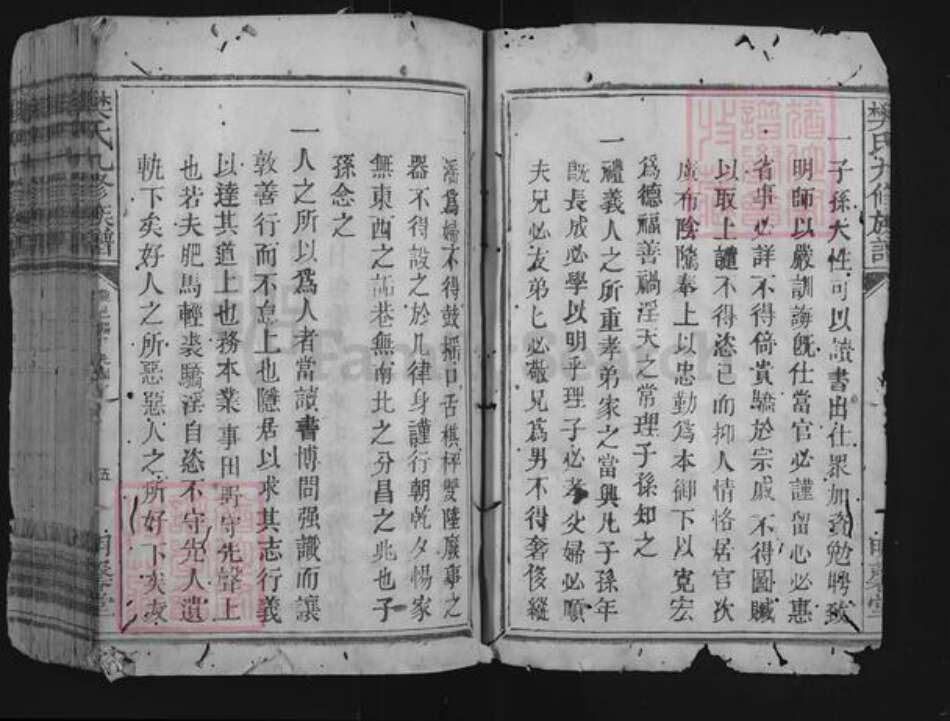 樊氏九修族譜
一子孫大性可以讀書出仕眾加資勉聘致
明師以嚴訓誨旣仕當官必謹留心必惠
省事必詳不得倚貴驕於宗戚不得圖贓
以取上譴不得恣己而抑人情恪居官次
廣布陰隲奉上以忠勤爲本御下以寬宏
爲德福善禍淫天之常理子孫知之
一禮義人之所重孝弟家之當興凡子孫年
旣長成必學以明乎理子必孝父婦必順
夫兄必友弟弟必敬兄爲男不得奢侈縱
淫爲婦不得鼓搖口舌棋枰雙陸廢事之
器不得設之於几律身謹行朝乾夕惕家
無東西之 巷無南北之分昌之兆也子
孫念之
一人之所以爲人者當讀書博問强識而讓
敦善行而不怠上也隱居以求其志行義
以達其道上也務本業事田野守先聲上
也若夫肥馬輕裘驕淫自恣不守先人遺
軌下矣好人之所惡惡人之所好下矣
樊氏九修族譜
五